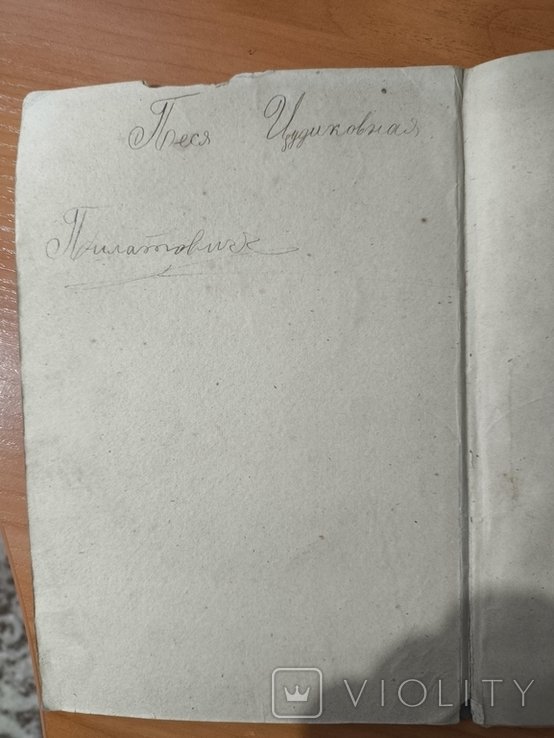 Песя Цудиковная
Пилатовиск
VIOLITY